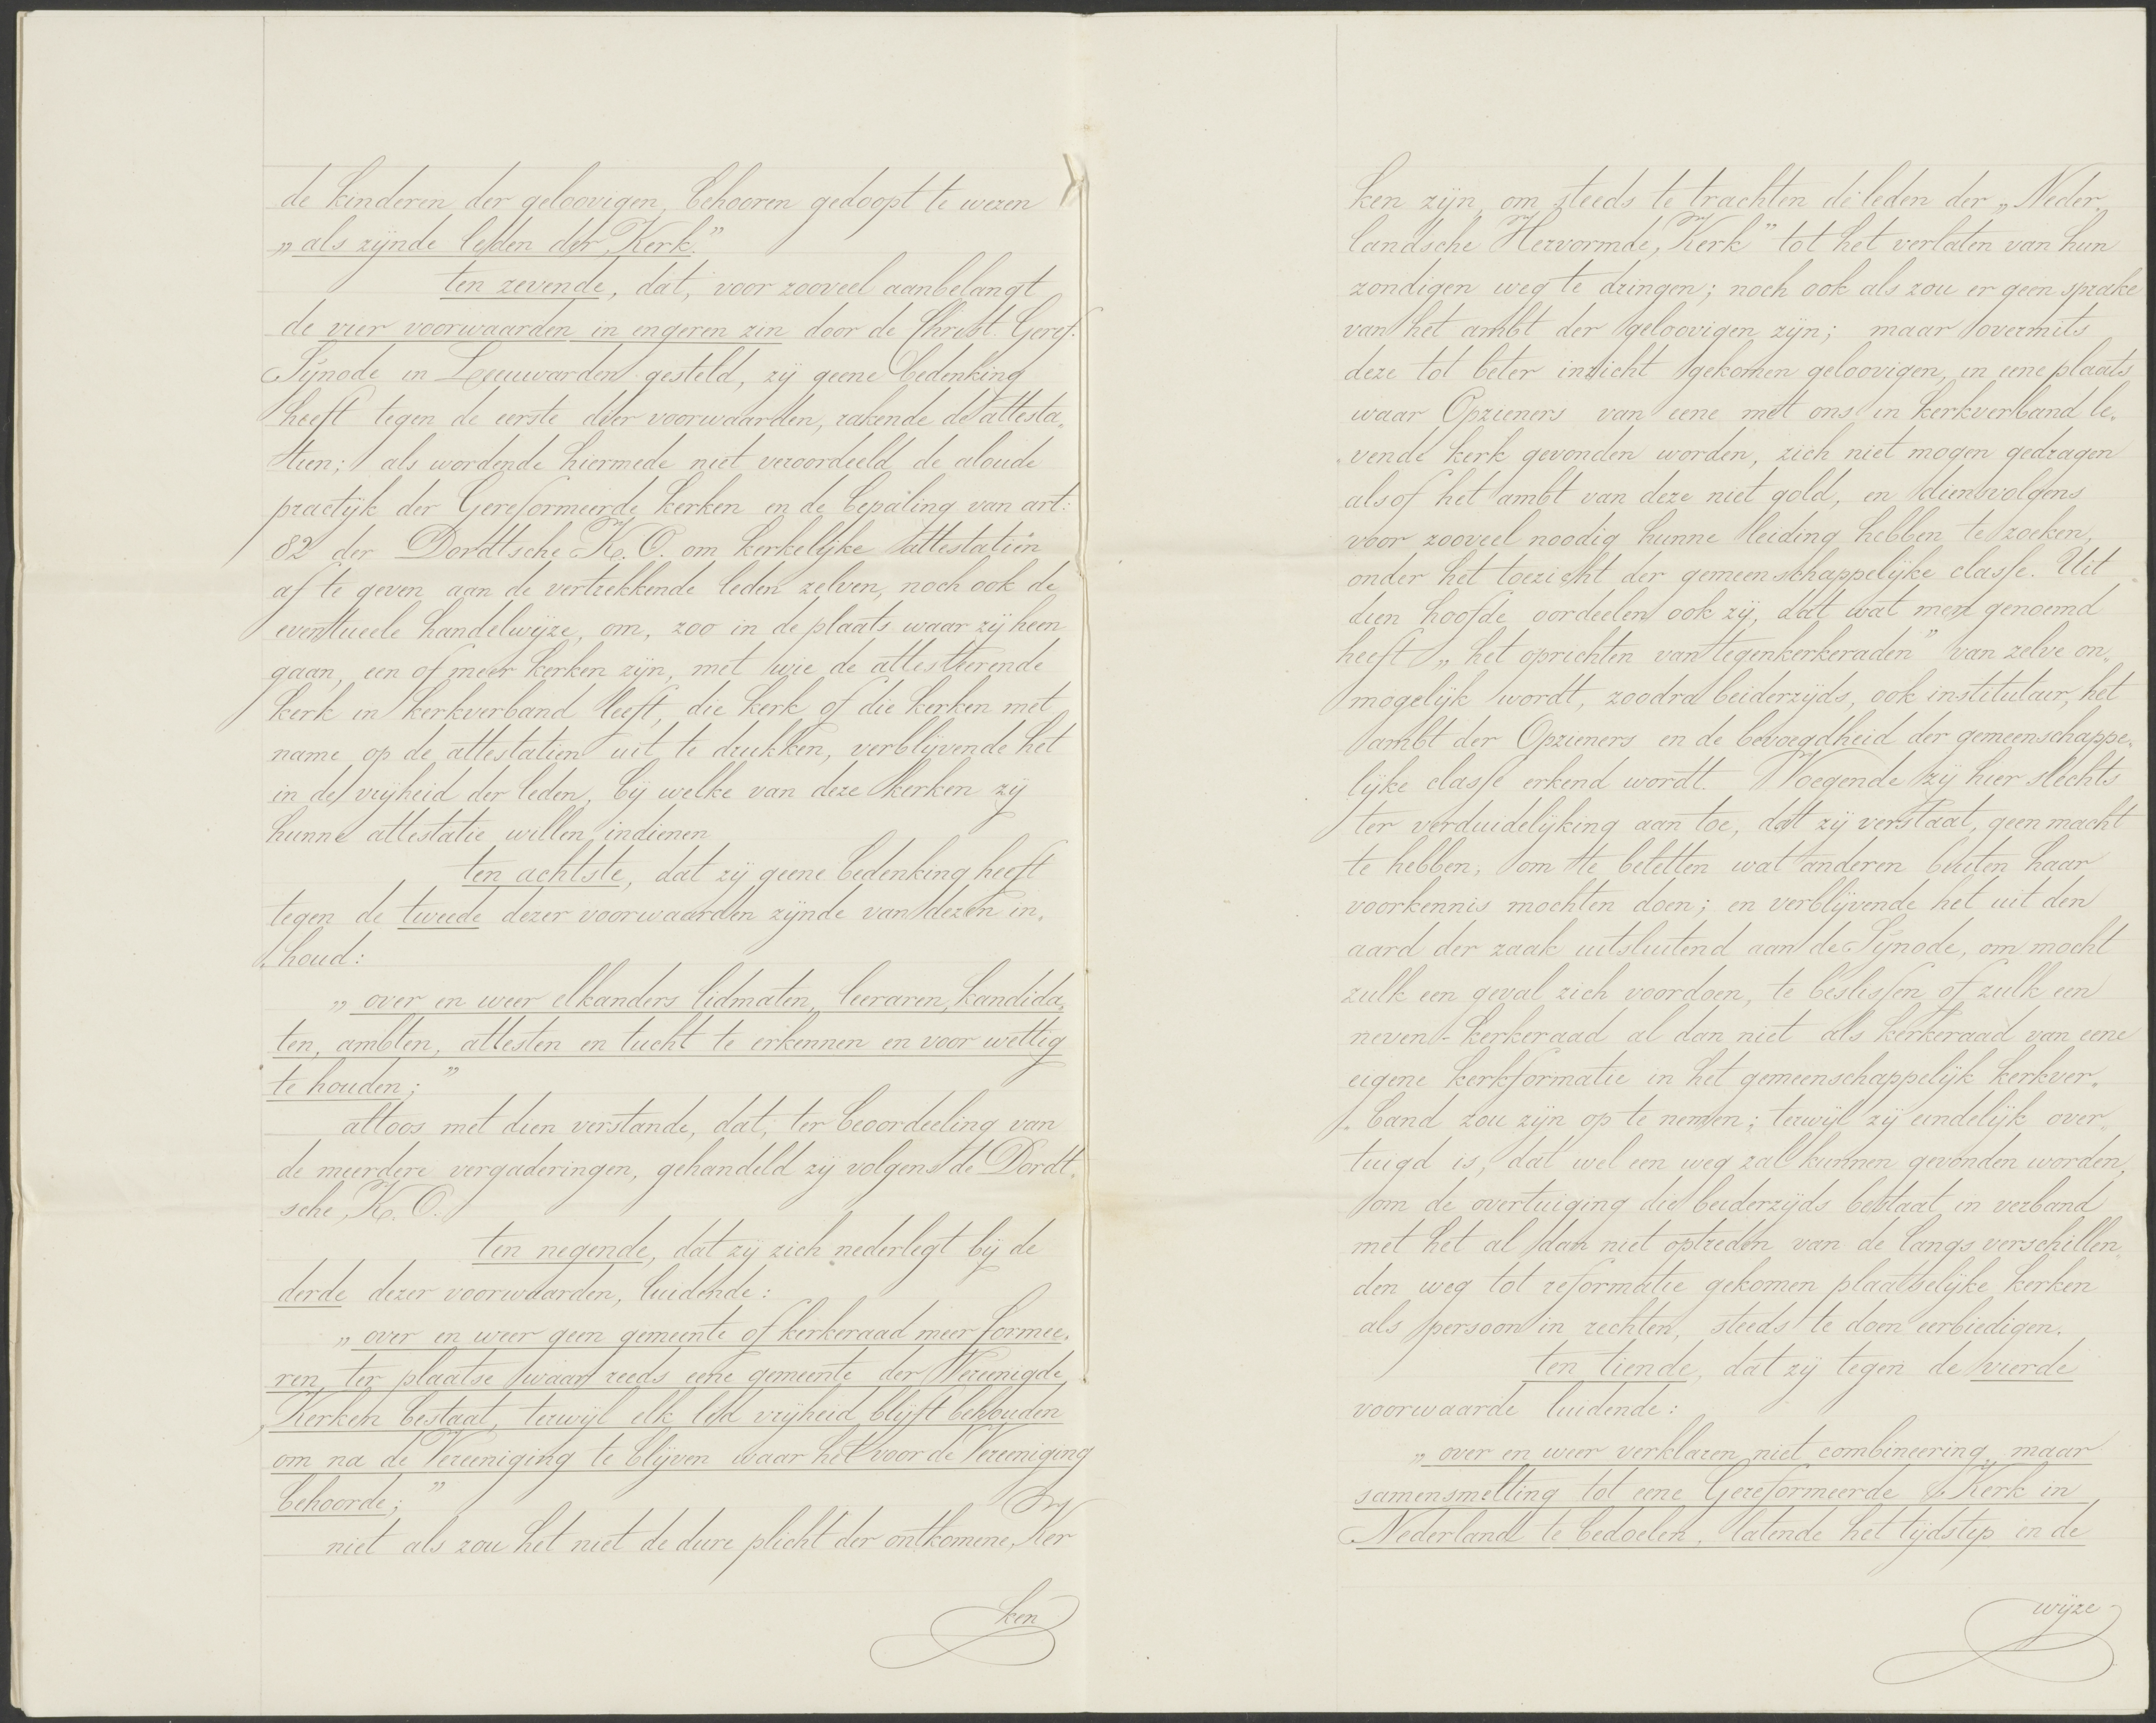 de kinderen der geloovigen, behooren gedoopt te wezen
„als zijnde leden der Kerk.”
ten zevende, dat, voor zooveel aanbelangt
de vier voorwaarden in engeren zin door de Christ. Geref.
Synode in Leeuwarden gesteld, zij geene bedenking
heeft tegen de eerste dier voorwaarden, rakende de attesta„
tien; als wordende hiermede niet veroordeeld de aloude
practijk der Gereformeerde kerken en de bepaling van art:
82 der Dordtsche K. O. om kerkelijke attestatiën
af te geven aan de vertrekkende leden zelven, noch ook de
eventueele handelwijze, om, zoo in de plaats waar zij heen
gaan, een of meer kerken zijn, met wie de attesteerende
kerk in kerkverband leeft, die kerk of die kerken met
name op de attestatien uit te drukken, verblijvende het
in de vrijheid der leden, bij welke van deze kerken zij
hunne attestatie willen indienen
ten achtste, dat zij geene bedenking heeft
tegen de tweede dezer voorwaarden zijnde van dezen in„
houd:
„over en weer elkanders lidmaten, leeraren, kandida„
ten, ambten, attesten en tucht te erkennen en voor wettig
te houden;”
altoos met dien verstande, dat, ter beoordeeling van
de meerdere vergaderingen, gehandeld zij volgens de Dordt„
sche K. O.
ten negende, dat zij zich nederlegt bij de
derde dezer voorwaarden, luidende:
„over en weer geen gemeente of kerkeraad meer formee„
ren, ter plaatse waar reeds eene gemeente der Vereenigde
Kerken bestaat, terwijl elk lid vrijheid blijft behouden
om na de Vereeniging te blijven waar het voor de Vereeniging
behoorde;”
niet als zou het niet de dure plicht der ontkomene Ker
ken
ken zijn, om steeds te trachten de leden der „Neder„
landsche Hervormde Kerk” tot het verlaten van hun
zondigen weg te dringen; noch ook als zou er geen sprake
van het ambt der geloovigen zijn; maar overmits
deze tot beter inzicht gekomen geloovigen, in eene plaats
waar Opzieners van eene met ons in kerkverband le„
vende kerk gevonden worden, zich niet mogen gedragen
alsof het ambt van deze niet gold, en dienvolgens
voor zooveel noodig hunne leiding hebben te zoeken,
onder het toezicht der gemeenschappelijke classe. Uit
dien hoofde oordeelen ook zij, dat wat men genoemd
heeft „het oprichten van tegenkerkeraden” van zelve on„
mogelijk wordt, zoodra beiderzijds, ook institutair, het
ambt der Opzieners en de bevoegdheid der gemeenschappe„
lijke classe erkend wordt. Voegende zij hier slechts
ter verduidelijking aan toe, dat zij verstaat, geen macht
te hebben, om te beletten wat anderen buiten haar
voorkennis mochten doen; en verblijvende het uit den
aard der zaak uitsluitend aan de Synode, om mocht
zulk een geval zich voordoen, te beslissen of zulk een
neven-kerkeraad al dan niet als kerkeraad van eene
eigene kerkformatie in het gemeenschappelijk kerkver„
band zou zijn op te nemen; terwijl zij eindelijk over„
tuigd is, dat wel een weg zal kunnen gevonden worden,
om de overtuiging die beiderzijds bestaat in verband
met het al dan niet optreden van de langs verschillen
den weg tot reformatie gekomen plaatselijke kerken
als persoon in rechten, steeds te doen eerbiedigen.
ten tiende, dat zij tegen de vierde
voorwaarde luidende:
„over en weer verklaren niet combineering, maar
samensmelting tot eene Gereformeerde Kerk in
Nederland te bedoelen, latende het tijdstip en de
wijze